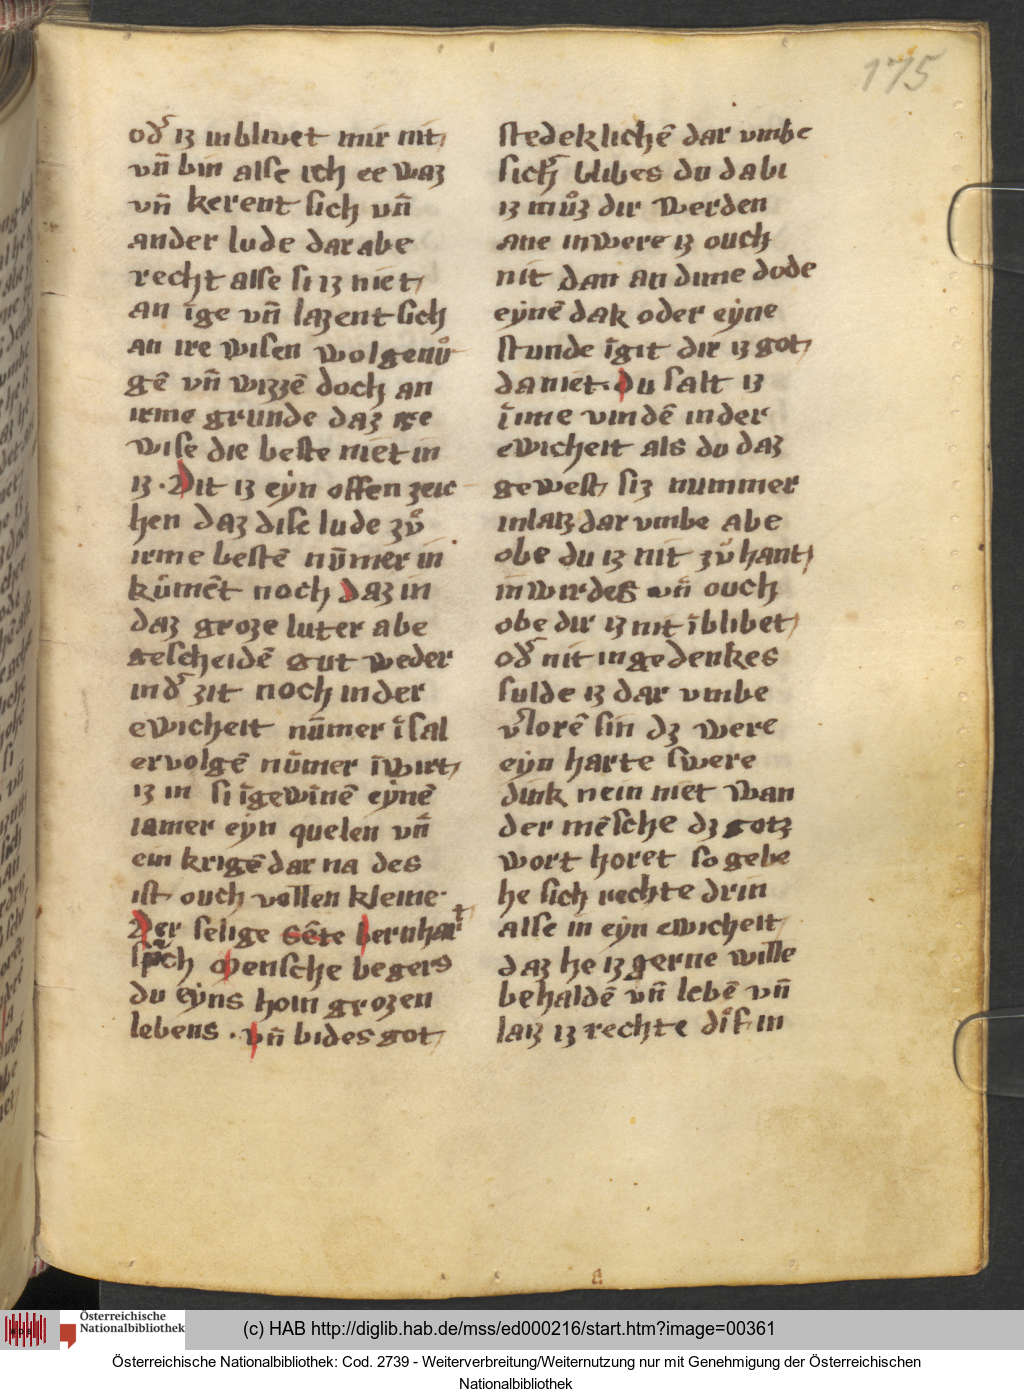 175
od᷑ iz inbliuet mir nit
vn̄ bin alse ich ee waz
vn̄ kerent sich vn̄
ander lude dar abe
recht alse si iz niet
an īge vn̄ lazent sich
an ire wisen wol genuͦ
gē vn̄ wizzē doch an
irme grunde daz ire
wise die beste niet in
iz · Dit iz eyn offen zeic
hen daz dise lude zuͦ
irme bestē nūmer in
kūmēt noch Daz in
daz groze luter abe
gescheidē gut weder
in d᷑ zit noch in der
ewicheit nūmer īsal
ervolgē nūmer īwirt
iz in si īgewīnē eynē
iamer eyn quelen vn̄
ein krigē dar na des
ist ouch vollen kleine·
Der selige sēte bernhart
sp̄ch Mensche begers
du eyns hoin grozen
lebens · vn̄ bides got
stedeklichē dar vmbe
sich᷑ blibes du dabi
iz muͦz dir werden
ane inwere iz ouch
nit dan an dime dode
eynē dak oder eyne
stunde īgit dir iz got
da niet· du salt iz
īime vindē in der
ewicheit als du daz
gewest siz nummer
inlaiz dar vmbe abe
obe du iz nit zuͦ hant
inwirdes vn̄ ouch
obe dir iz nit īblibet
od᷑ nit ingedenkes
sulde iz dar vmbe
v᷑lorē sin dz were
eyn harte swere
dink nein niet wan
der mēsche dz gotz
wort horet so gebe
he sich rechte drin
alse in eyn ewicheit
daz he iz gerne wille
behaldē vn̄ lebē vn̄
laiz iz rechte dis in
Österreichische
Nationalbibliothek
(c) HAB http://diglib.hab.de/mss/ed000216/start.htm?image=00361
Österreichische Nationalbibliothek: Cod. 2739 - Weiterverbreitung/Weiternutzung nur mit Genehmigung der Österreichischen
Nationalbibliothek